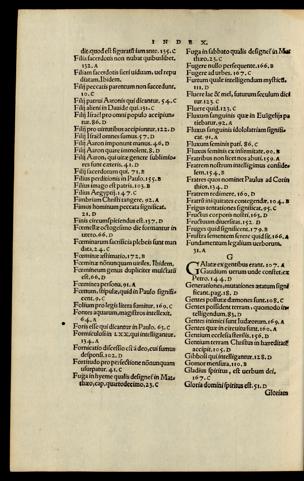 INDEX.
die. quod est figuratū iam ante. 135. C
Filia sacerdotis non nubat quibuslibet.
132. A
Filiam sacerdotis fieri viduam, vel repu
diatam, Ibidem.
Filij peccatis parentum non succedunt.
10. C
Filij patrui Aaronis qui dicantur. 54. C
Filij alieni in Dauide qui. 131. C
Filij Israel pro omni populo accipiun-
tur. 86. D
Filij pro virtutibus accipiuntur, 122. D
Filij Israel omnes sumus. 57. D
Filij Aaron imponunt manus. 46. D
Filij Aaron quare immolent. 8. D
Filij Aaron, qui vitæ genere sublimio-
res sunt cæteris. 41. D
Filij sacerdotum qui. 71. B
Filius perditionis in Paulo. 155. B
Filius imago est patris. 103. B
Filius Aegypij. 147. C
Fimbrium Christi tangere. 92. A
Finus hominum peccata significat.
21. D
Finis circumspiciendus est. 137. D
Fœmellæ octogesimo die formantur in
utero. 66. D
Fœminarum sacrificia plebeis sunt man
data. 24. C
Fœminæ æstimatio, 172. B
Fœminæ nōnunquam viriles. Ibidem.
Fœmineum genus dupliciter mulctatū
est. 66. D
Fœminea persona. 91. A
Fœtum, stipulæ, quid in Paulo signifi-
cent. 9. C
Folium pro legis litera sumitur. 160. C
Fontes aquarum, magistros intellexit.
64. A
Foris esse qui dicantur in Paulo. 63. C
Formiculosi in LXX, qui intelligantur.
134. A
Fornicatio discessio est à deo, cui sumus
desponsi. 102. D
Fortitudo pro perfectione nōnunquam
usurpatur. 41. C
Fuga in hyeme qualis designet in Mat-
thæo, cap. quartodecimo. 23. C
Fuga in sabbato qualis designet in Mat
thæo. 23. C
Fugere nullo persequente. 166. B
Fugere ad urbes. 167. C
Furtum quale intelligendum mysticū.
111. D
Fluere lac & mel, futurum seculum dici
tur. 123. C
Fluere quid. 123. C
Fluxum sanguinis quæ in Euāgelijs pa
tiebatur. 92. A
Fluxus sanguinis idololatriam signifi-
cat. 91. A
Fluxum seminis pati. 86. C
Fluxus seminis ex infirmitate. 90. B
Fratribus non licet nos abuti. 159. A
Fratrem nostrum intelligimus conside-
sem. 154. B
Fratres quos nominet Paulus ad Corin
thios. 134. D
Fratrem redimere. 160. D
Fratris iniquitates contegendæ. 104. B
Frigus tentationes significat. 95. C
Fructus corporis nostri. 165. D
Fructuum diuersitas. 152. D
Fruges quid significent. 179. B
Frustra sementem serere quid sit. 166. A
Fundamentum legalium verborum.
31. A
G
GAlatæ ex gentibus erant. 107. A
Gaudium uerum unde constet, ex
Petro. 144. D
Generationes, mutationes ætatum signi
ficant. pag. 18. D
Gentes pollutæ dæmones sunt. 108. C
Gentes possidere terram, quomodo in-
telligendum. 83. D
Gentes inimici sunt Iudæorum. 169. A
Gentes quæ in circuitu sunt. 160. A
Gentium ecclesia sterilis. 156. D
Gentium terram Christus in hæreditatē
accipit. 105. D
Gibbosi qui intelligantur. 128. D
Gomor mensura, 110. B
Gladius spiritus, est verbum dei,
167. C
Gloria domini spiritus est. 51. D
Gloriam